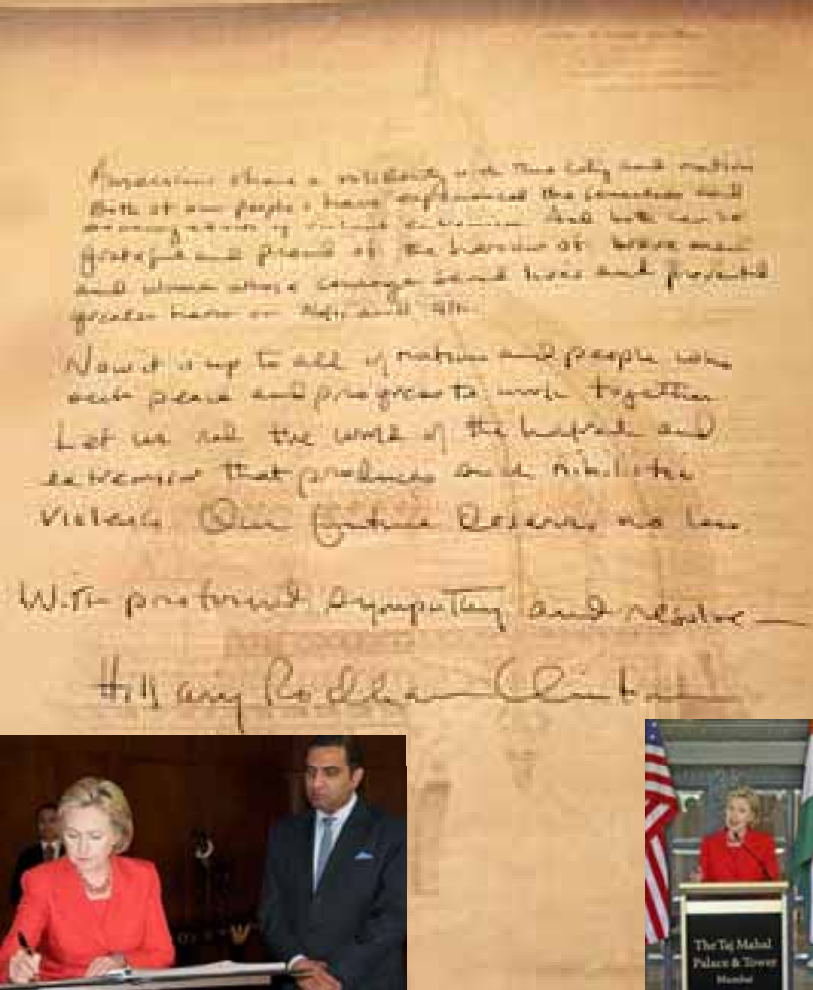 Americans share a solidarity with this city and nation
Both of our peoples have experienced the senseless and
of violent extremism. And both can be
grateful and proud of the heroism of brave men
and women whose courage saved lives and prevented
greater harm on 26/11 and 9/11.
Now it is up to all of nations and people who
seek peace and progress to work together
Let us rid the world of the hatred and
extremism that produces such nihilistic
violence. Our future deserves no less.
With profound sympathy and resolve—
Hillary Rodham Clinton
The Taj Mahal
Palace & Tower
Mumbai